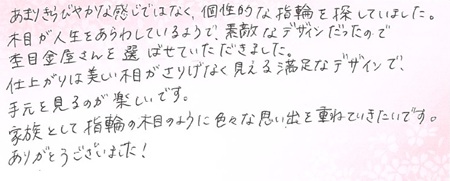 あまりきらびやかな感じではなく、個性的な指輪を探していました。
木目が人生をあらわしているようで、素敵なデザインだったので
杢目金屋さんを選ばせていただきました。
仕上がりは美しい木目がさりげなく見える満足なデザインで、
手元を見るのが楽しいです。
家族として指輪の木目のように色々な思い出を重ねていきたいです。
ありがとうございました!